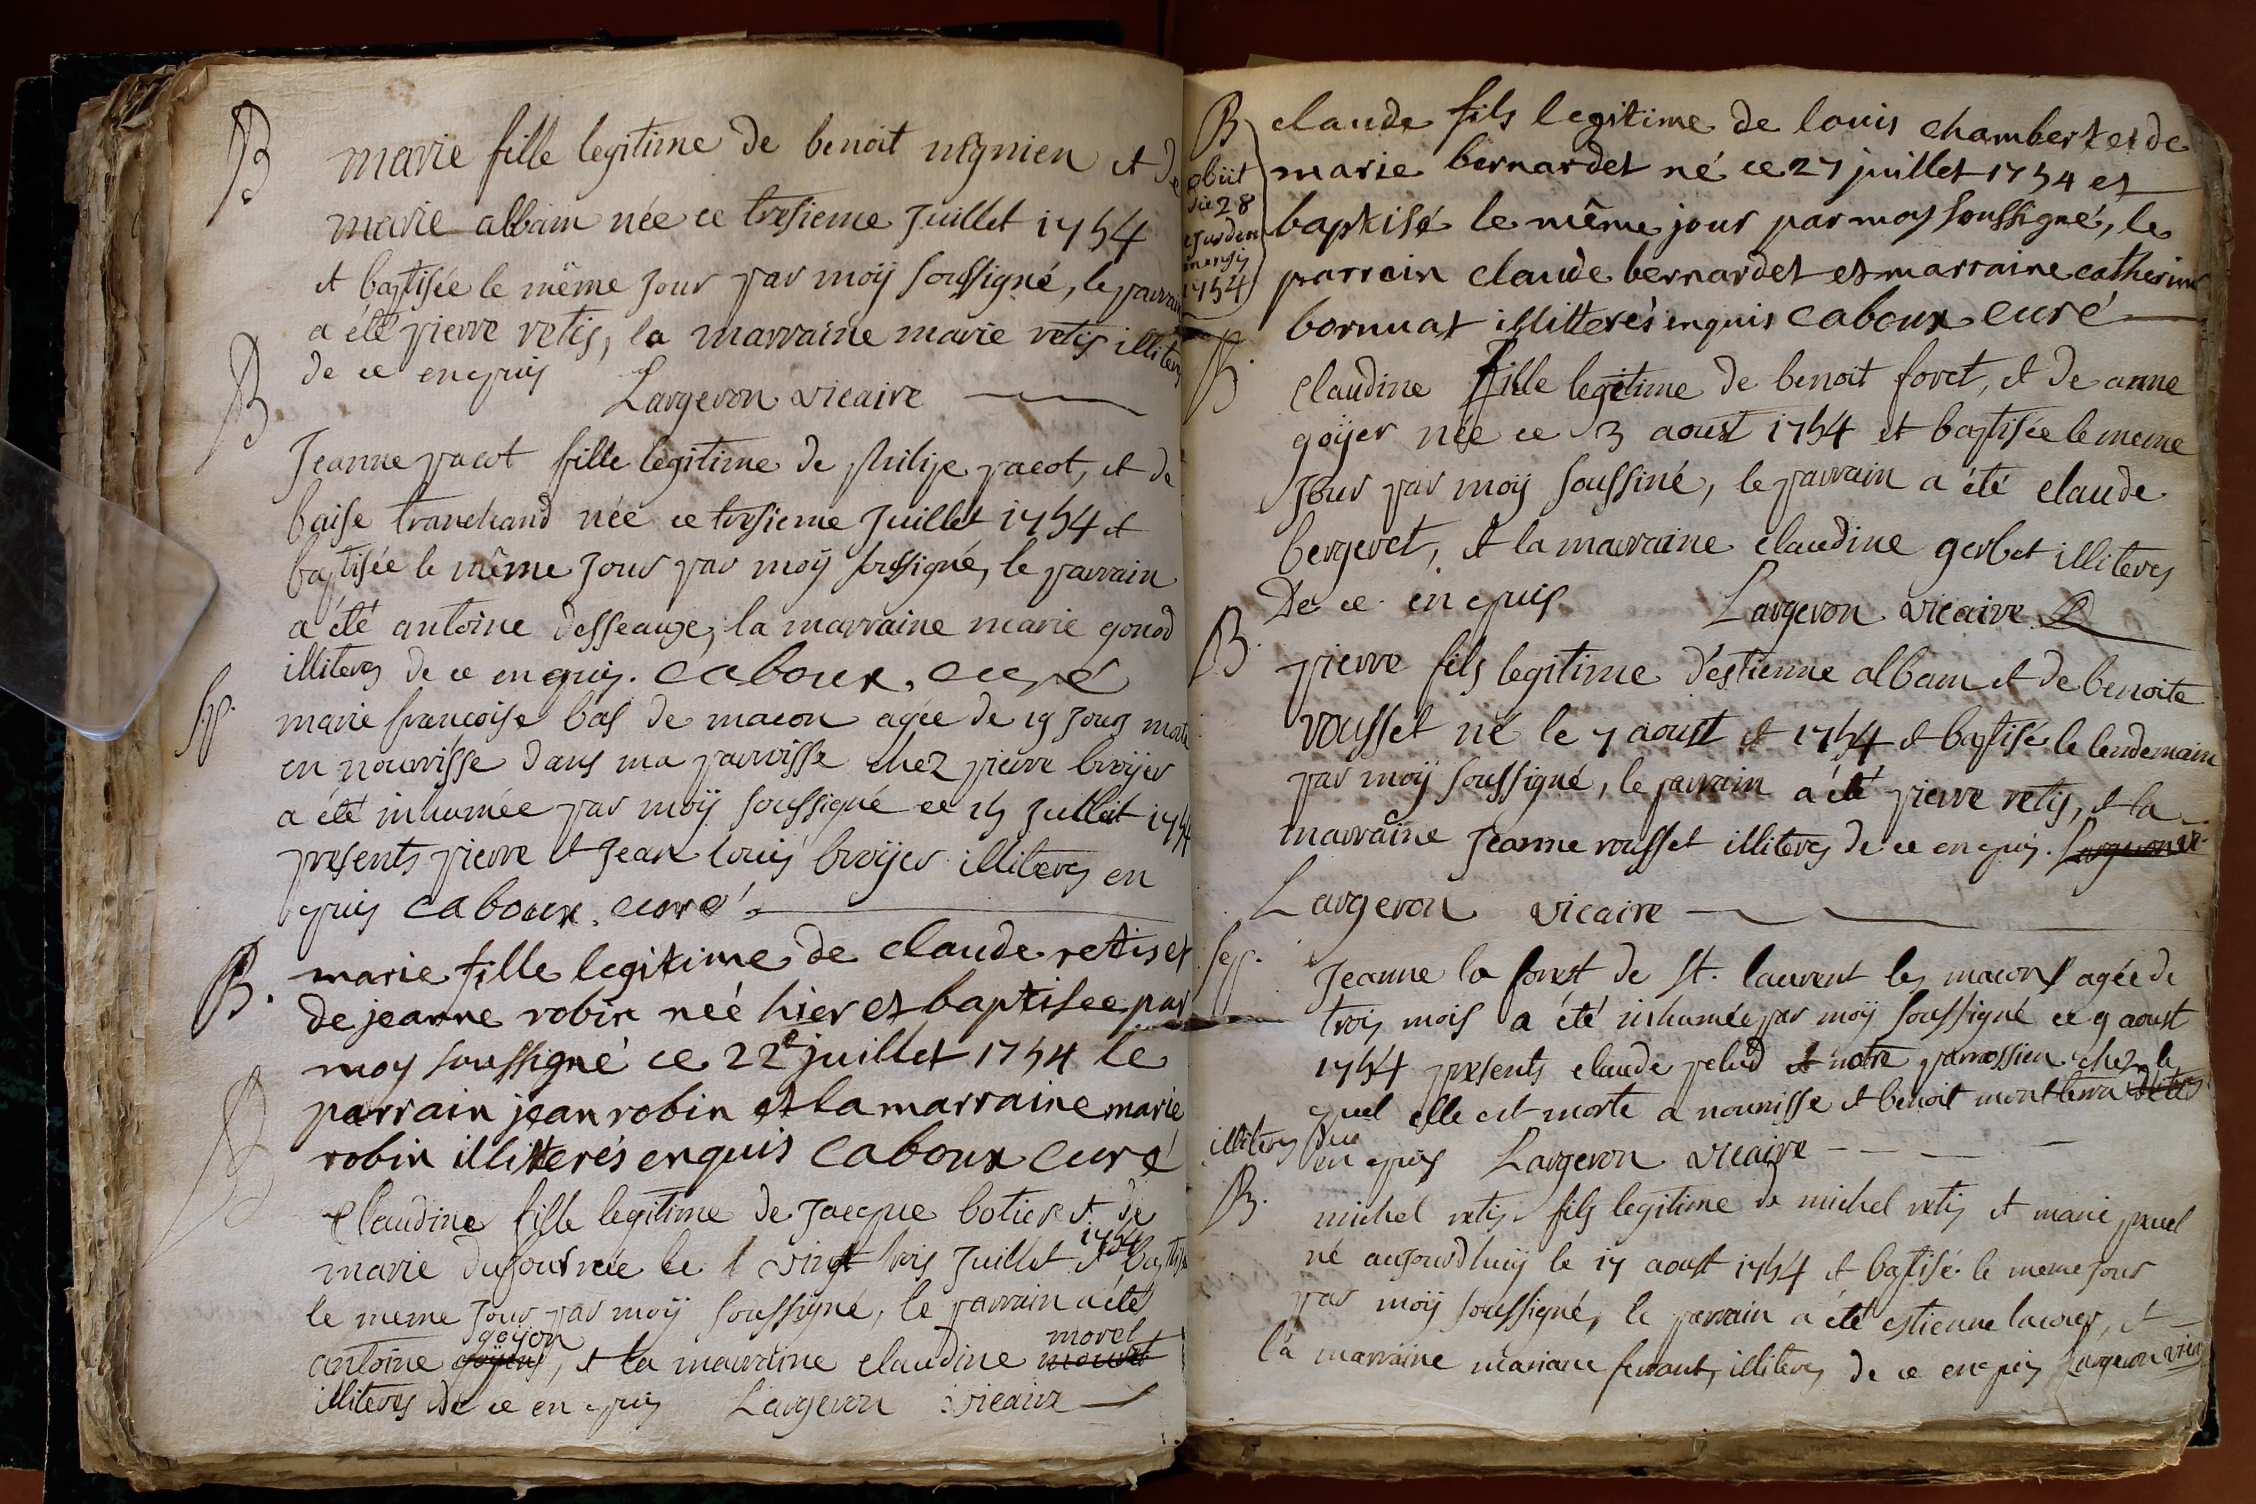 B
marie fille legitime de benoit nignien et de
marie albain née ce tresieme Juillet 1754
et baptisée le même Jour par moÿ soussigné, le parrain
a été pierre retis, la marraine marie retis illiteres
de ce enquis Largeron vicaire
B
Jeanne pacot fille legitime de philipe pacot, et de
baise tranchand née ce tresieme Juillet 1754 et
baptisée le même Jour par moÿ soussigné, le parrain
a été antoine desseauge, la marraine marie gonod
illiteres de ce enquis. caboux. curé
Sep.
marie francoise bas de macon agée de 19 Jours morte
en nourrisse dans ma parroisse chez pierre broÿer
a été inhumée par moÿ soussigné ce 15 Juillet 1754
presents pierre et Jean louis broÿer illiteres en
quis caboux. curé
B.
marie fille legitime de claude retis et
de jeanne robin neé hier et baptisee par
moy soussigné ce 22e juillet 1754 le
parrain jean robin et la marraine marie
robin illitterés enquis caboux curé
B
Claudine fille legitime de Jacque botier et de
marie dufour née le vingt trois Juillet 1754 et baptisé
le meme Jour par moÿ soussigné, le parrain a été
antoine goyon, et la marraine claudine morel
illiteres de ce en quis Largeron vicaire
B
obiit
die 28
ejusdem
mensis
1754
claude fils legitime de louis chambert et de
marie bernardet né ce 27 juillet 1754 et
baptisé le même jour par moy soussigné, le
parrain claude bernardet et marraine catherine
bornuat illitterés enquis caboux curé
B.
Claudine fille legitime de benoit foret, et de anne
goÿer née ce 3 aoust 1754 et baptisée le meme
Jour par moÿ soussiné, le parrain a été claude
bergeret, et la marraine claudine gerbet illiteres
De ce enquis Largeron vicaire
B.
pierre fils legitime d'estienne albam et de benoite
rousset né le 7 aoust et 1754 et baptisé le lendemain
par moÿ soussigné, le parrain a été pierre retis, et la
marraine Jeanne rousset illiteres de ce enquis.
Largeron vicaire
Sep.
Jeanne la forest de St. laurent les macon agée de
trois mois a été inhumée par moÿ soussigné ce 9 aoust
1754 presents claude pelud notre parroissien chez le
quel elle est morte a nourrisse et benoit monterra
illiteres
en quis Largeron vicaire
B.
michel retis fils legitime de michel retis et marie
né aujourdhuÿ le 17 aoust 1754 et baptisé le meme Jour
par moÿ soussigné, le parrain a été estienne lacour, et
la marraine mariane ferrant, illiteres de ce enquis Largeron vicaire